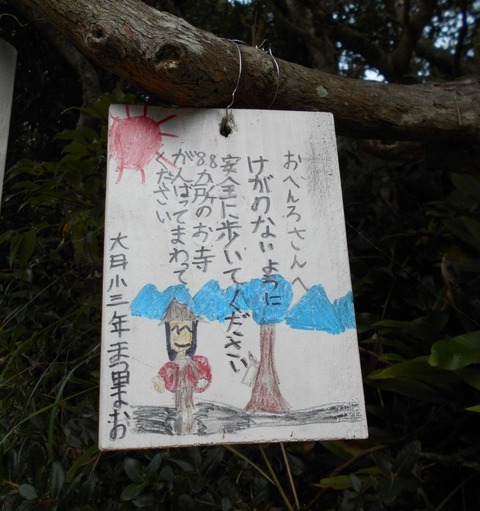 おへんろさんへ
けがのないように
安全に歩いてください
88カ所のお寺
がんばってまわって
ください
大月小三年 まつ里 まお